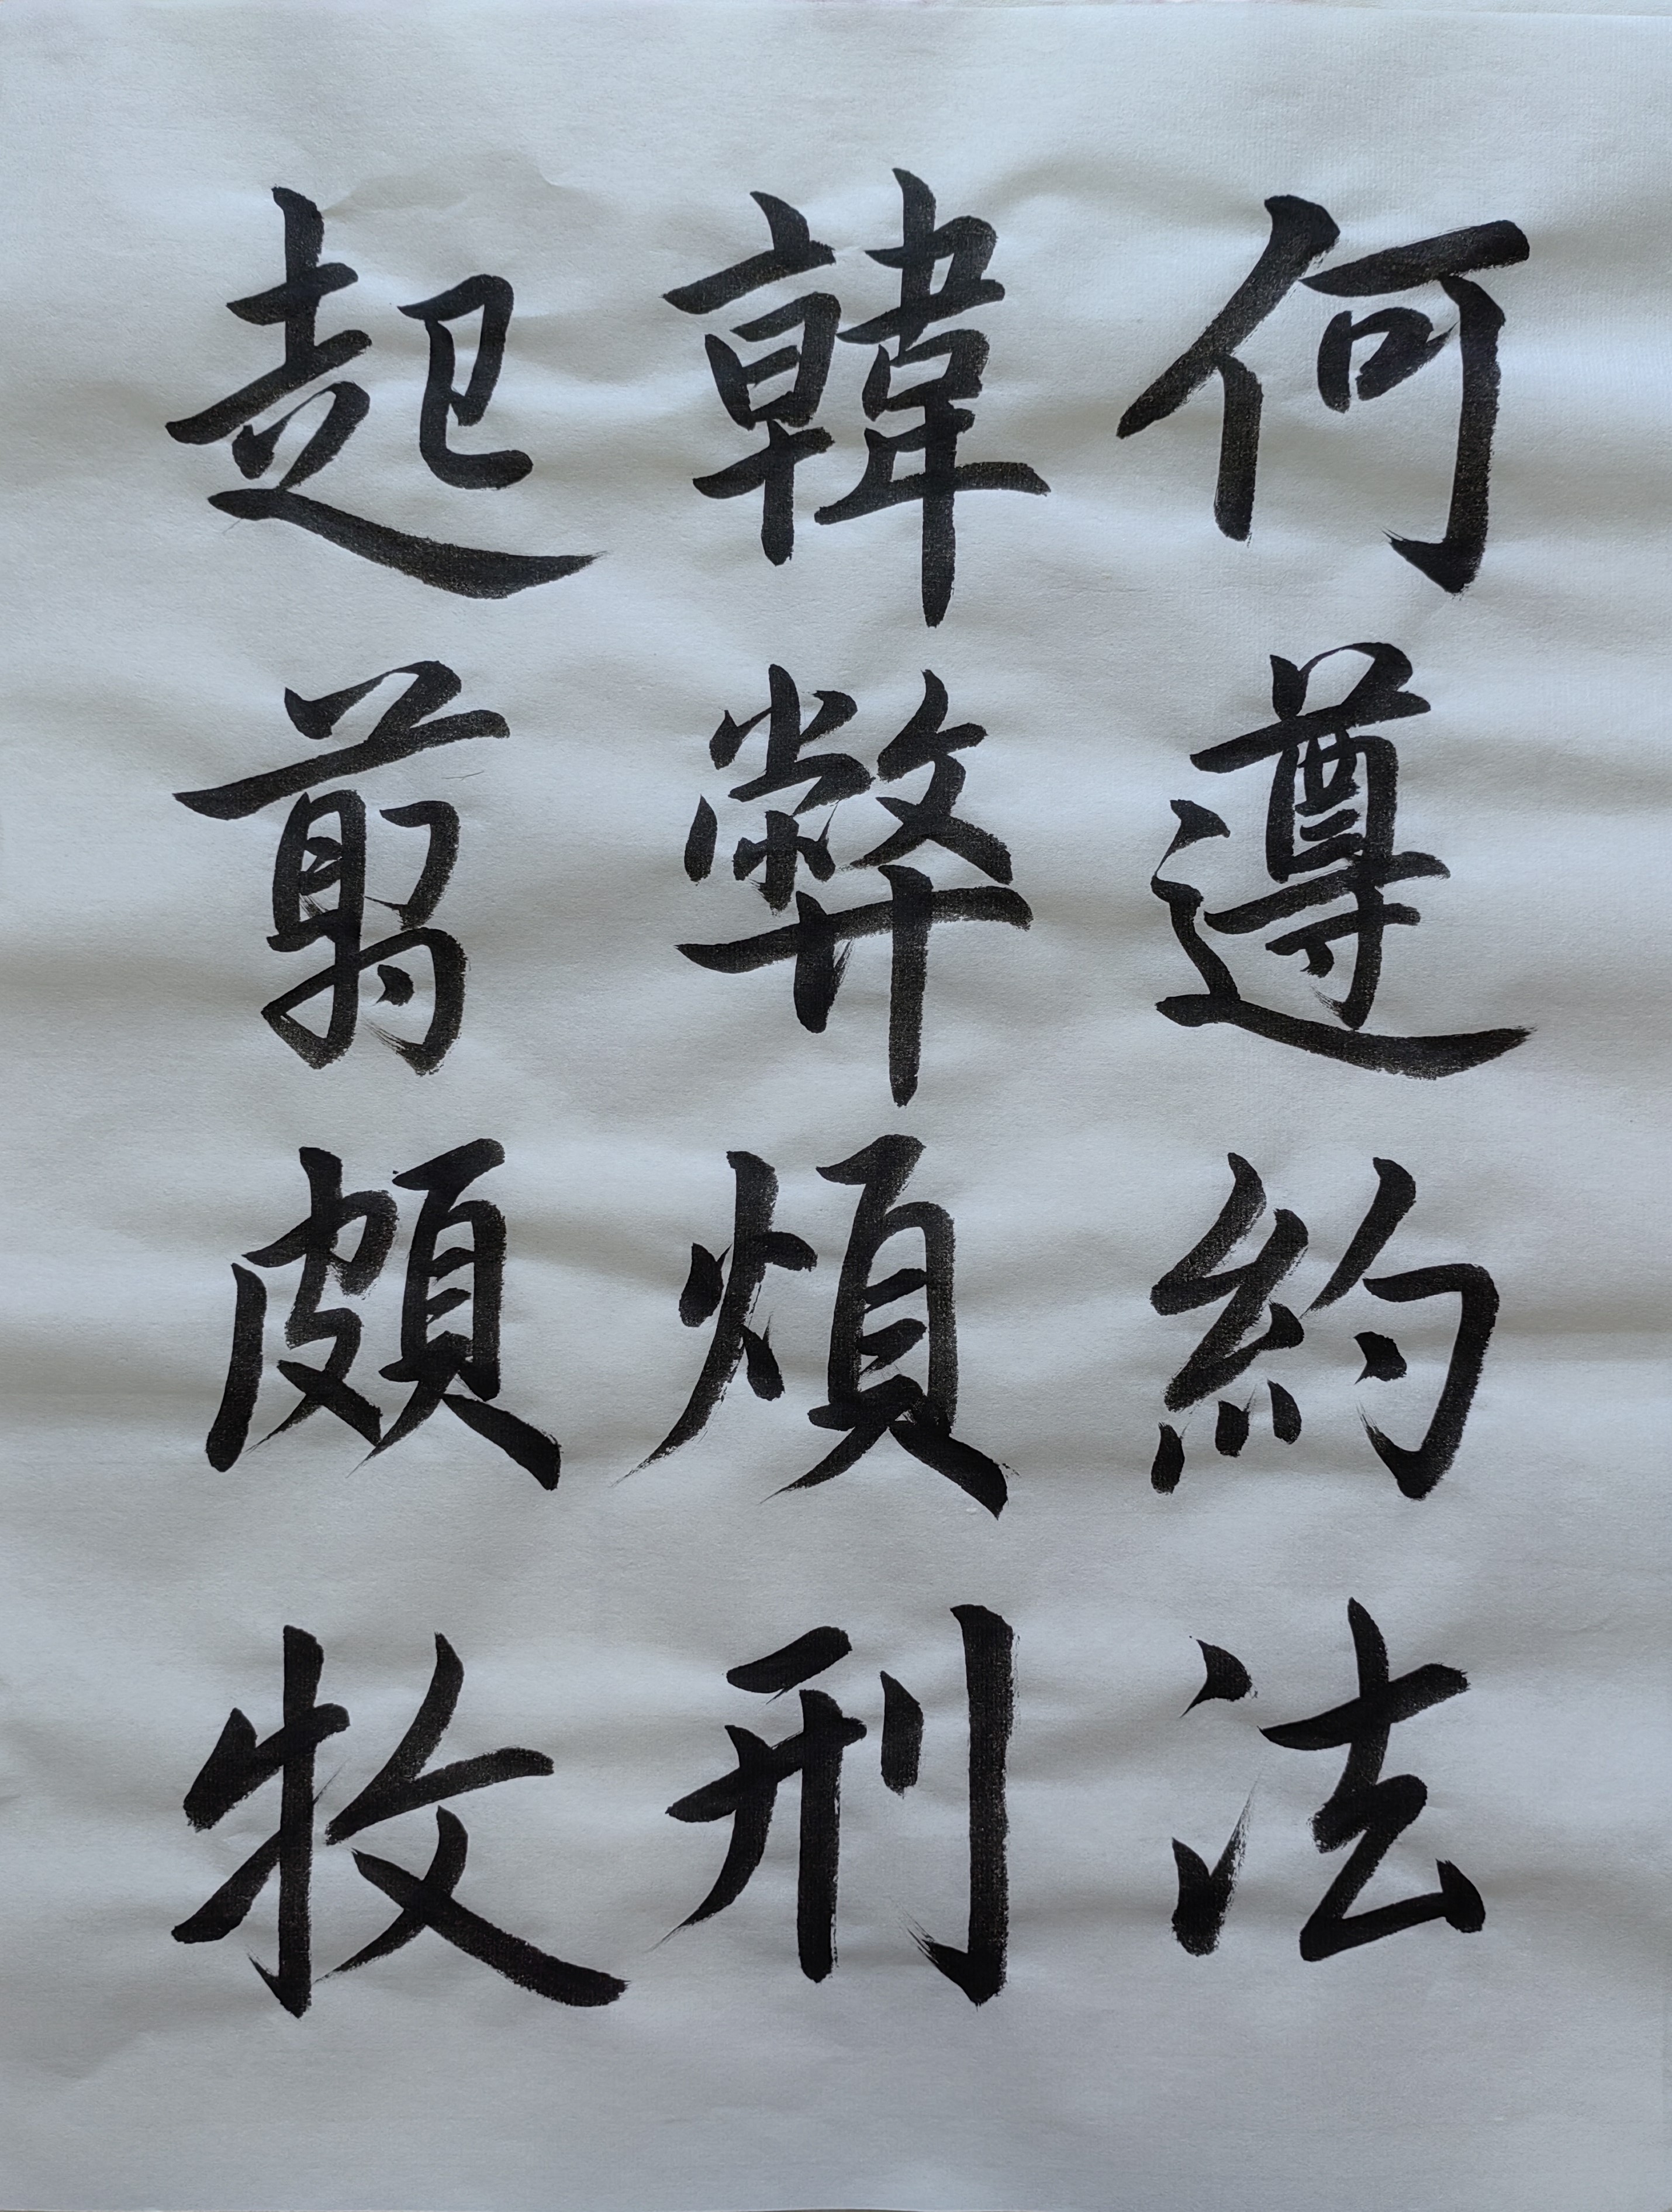 何遵約法
韓弊煩刑
起翦頗牧